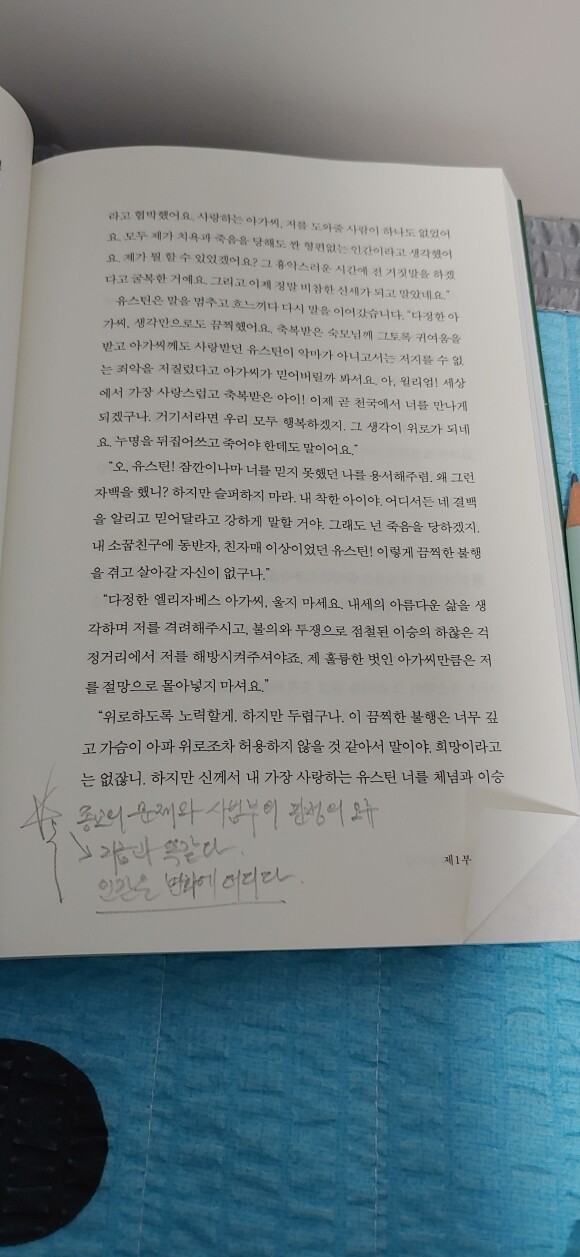 라고 협박했어요. 사랑하는 아가씨, 저를 도와줄 사람이 하나도 없었어
요. 모두 제가 치욕과 죽음을 당해도 싼 형편없는 인간이라고 생각했어
요. 제가 뭘 할 수 있었겠어요? 그 흉악스러운 시간에 전 거짓말을 하겠
다고 굴복한 거예요. 그리고 이제 정말 비참한 신세가 되고 말았네요.”
유스틴은 말을 멈추고 흐느끼다 다시 말을 이어갔습니다. “다정한 아
가씨, 생각만으로도 끔찍했어요. 축복받은 숙모님께 그토록 귀여움을
받고 아가씨께도 사랑받던 유스틴이 악마가 아니고서는 저지를 수 없
는 죄악을 저질렀다고 아가씨가 믿어버릴까 봐서요. 아, 윌리엄! 세상
에서 가장 사랑스럽고 축복받은 아이! 이제 곧 천국에서 너를 만나게
되겠구나. 거기서라면 우리 모두 행복하겠지. 그 생각이 위로가 되네
요. 누명을 뒤집어쓰고 죽어야 한데도 말이어요.”
“오, 유스틴! 잠깐이나마 너를 믿지 못했던 나를 용서해주렴. 왜 그런
자백을 했니? 하지만 슬퍼하지 마라. 내 착한 아이야. 어디서든 네 결백
을 알리고 믿어달라고 강하게 말할 거야. 그래도 넌 죽음을 당하겠지.
내 소꿉친구에 동반자, 친자매 이상이었던 유스틴! 이렇게 끔찍한 불행
을 겪고 살아갈 자신이 없구나.”
“다정한 엘리자베스 아가씨, 울지 마세요. 내세의 아름다운 삶을 생
각하며 저를 격려해주시고, 불의와 투쟁으로 점철된 이승의 하찮은 걱
정거리에서 저를 해방시켜주셔야죠. 제 훌륭한 벗인 아가씨만큼은 저
를 절망으로 몰아넣지 마셔요.”
“위로하도록 노력할게. 하지만 두렵구나. 이 끔찍한 불행은 너무 깊
고 가슴이 아파 위로조차 허용하지 않을 것 같아서 말이야. 희망이라고
는 없잖니. 하지만 신께서 내 가장 사랑하는 유스틴 너를 체념과 이승
종교의 문제와 사법부의 판정의 오류
지금과 똑같다.
인간은 변화에 더디다.
제1부